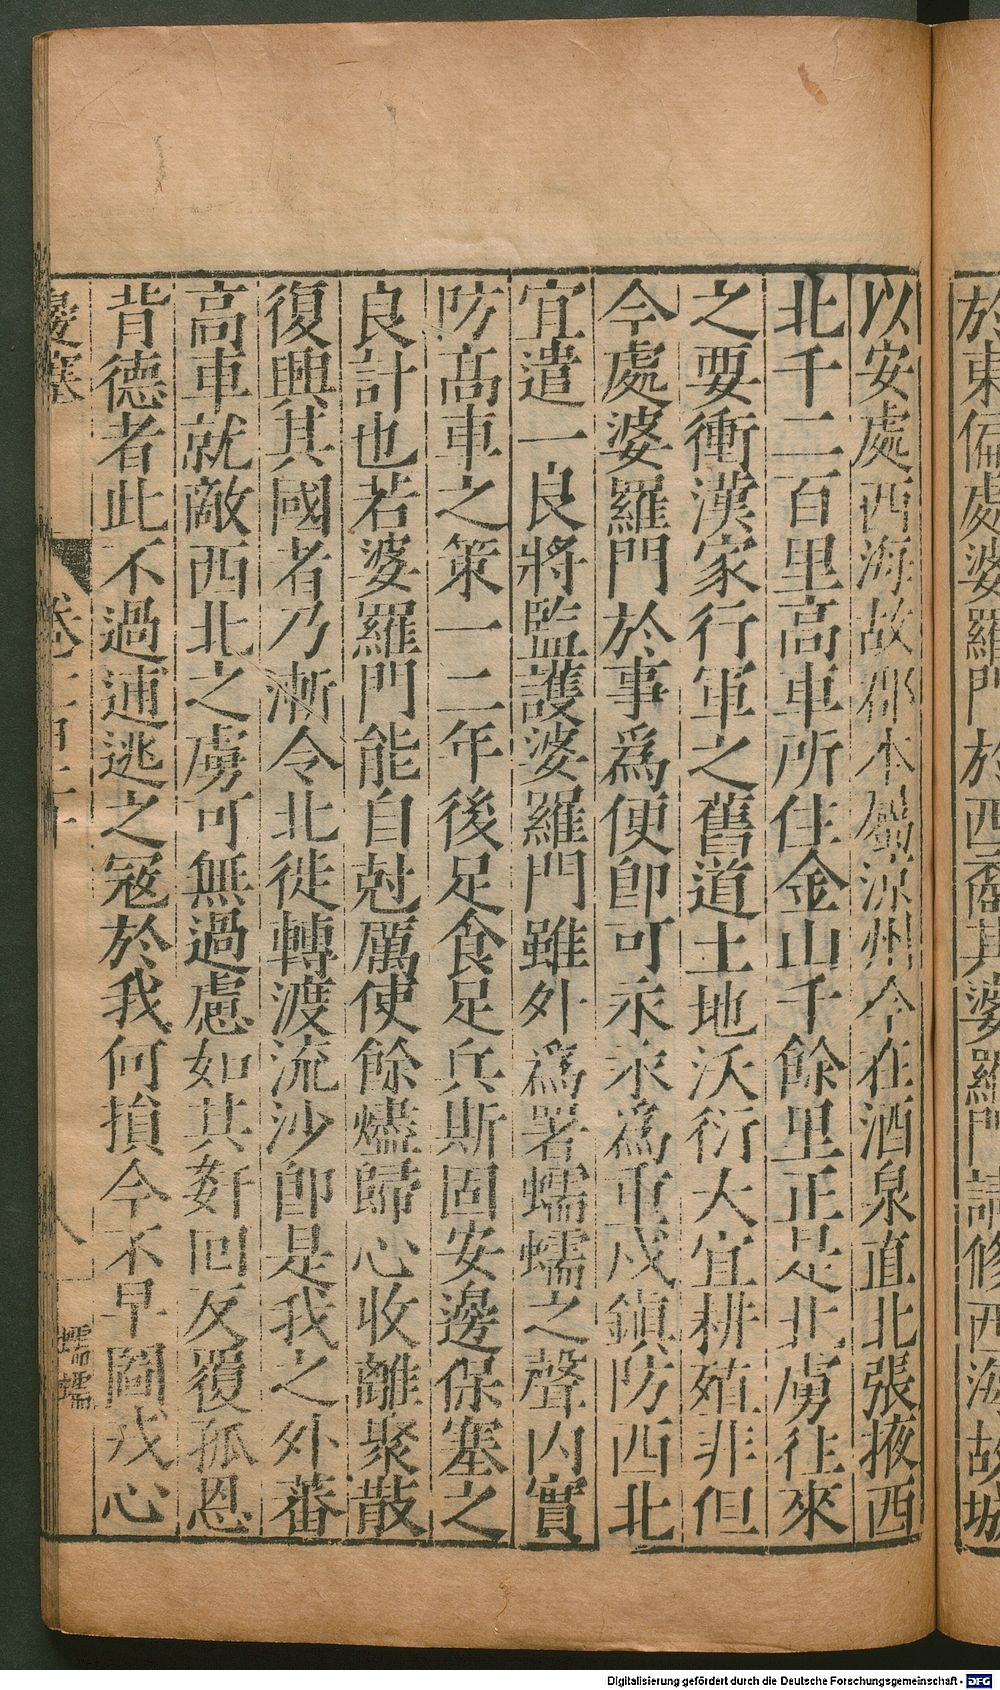 於東偏處婆羅門於西裔其婆羅門請修西海故城
以安處西海故郡本屬涼州今在酒泉直北張掖西
北千二百里高車所住金山千餘里正是北虜往來
之要衝漢家行軍之舊道土地沃衍大宜耕殖非但
今處婆羅門於事爲便即可永永爲重戍鎮防西北
宜遣一良將監護婆羅門雖外爲署蠕蠕之聲內實
防高車之策一二年後足食足兵斯固安邊保塞之
良計也若婆羅門能自尅厲使餘燼歸心收離聚散
復興其國者乃漸令北徙轉渡流沙即是我之外蕃
高車就敵西北之虜可無過慮如其姧回反覆孤恩
背德者此不過逋逃之寇於我何損今不早圖戎心
邊塞
卷
八
蠕蠕
Digitalisierung gefördert durch die Deutsche Forschungsgemeinschaft - DFG